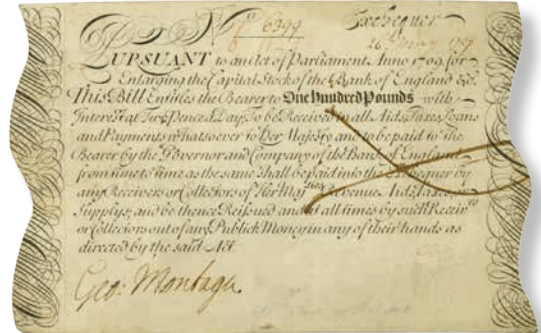 No 6399 Exchequer
26 May 1709
PURSUANT to an Act of Parliament Anno 1709. for
Enlarging the Capital Stock of the Bank of England &c.
This Bill Entitles the Bearer to One Hundred Pounds with
Interest at Two Pence a Day To be Received in all Aids, Taxes, Loans
and Payments whatsoever to Her Majesty and to be paid to the
Bearer by the Governor and Company of the Bank of England
from time to time as the same shall be paid into the Exchequer by
any Receivers or Collectors of Her Maj Revenue, Aids, Taxes or
Supplys, and be thence Reissued and at all times by such Receivrs
or Collectors out of any Publick Money in any of their hands as
directed by the said Act.
Geo: Montagu